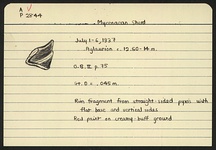 A
P 2844
Mycenaean Sherd
July 1-6, 1937
Asylaurian c. 12.60-14 m.
O.B. II p. 75
H. 0 = .045 m.
Rim fragment from straight-sided pyxis with
flat base and vertical sides
Red paint on creamy-buff ground